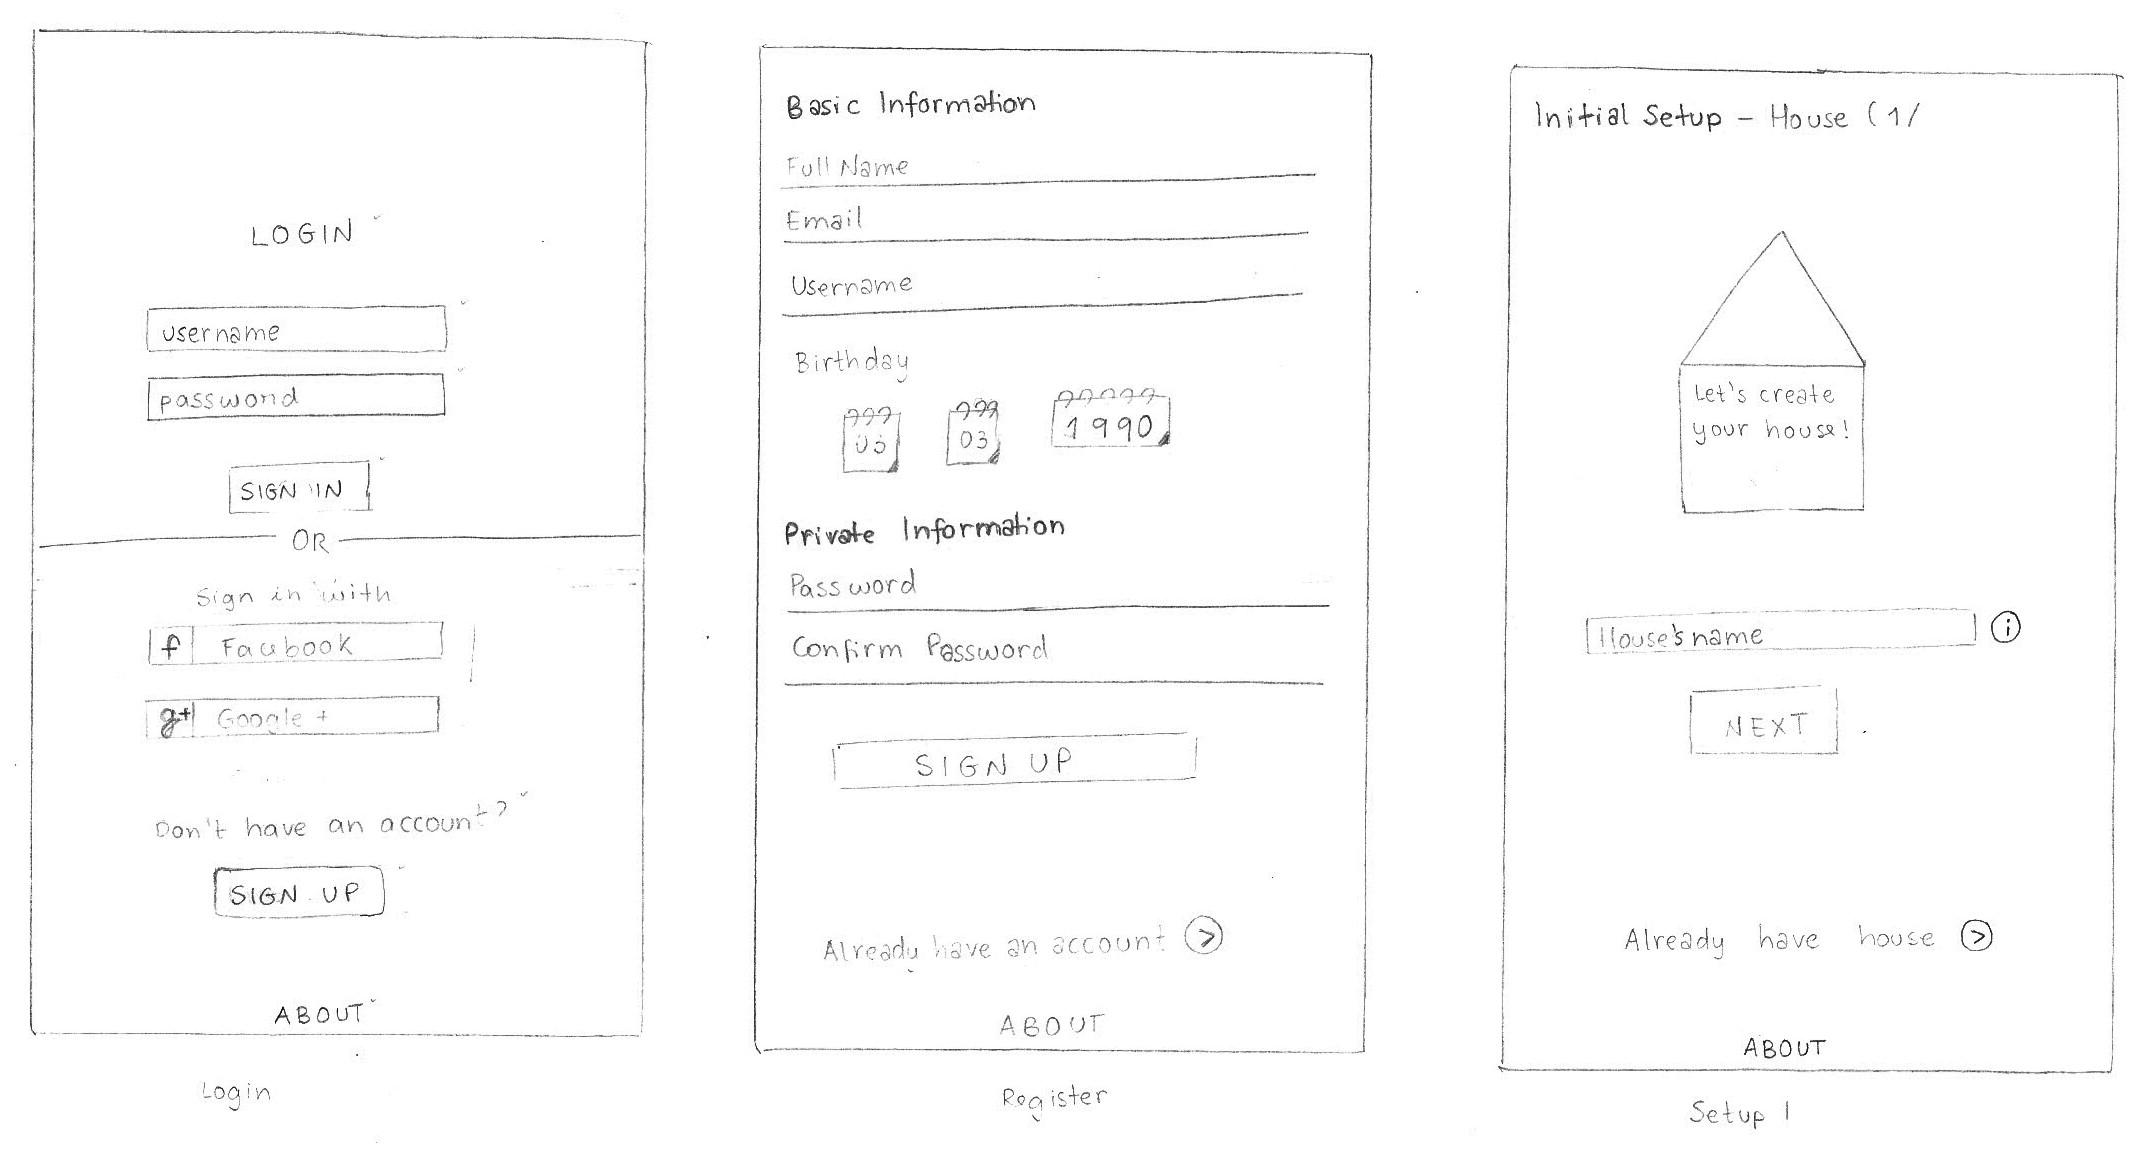 LOGIN
username
password
SIGN IN
OR
Sign in with
f Facebook
g+ Google +
Don't have an account?
SIGN UP
ABOUT
Login
Basic Information
Full Name
Email
Username
Birthday
03 03 1990
Private Information
Password
Confirm Password
SIGN UP
Already have an account >
ABOUT
Register
Initial Setup - House (1/
Let's create
your house!
House's name i
NEXT
Already have house >
ABOUT
Setup 1